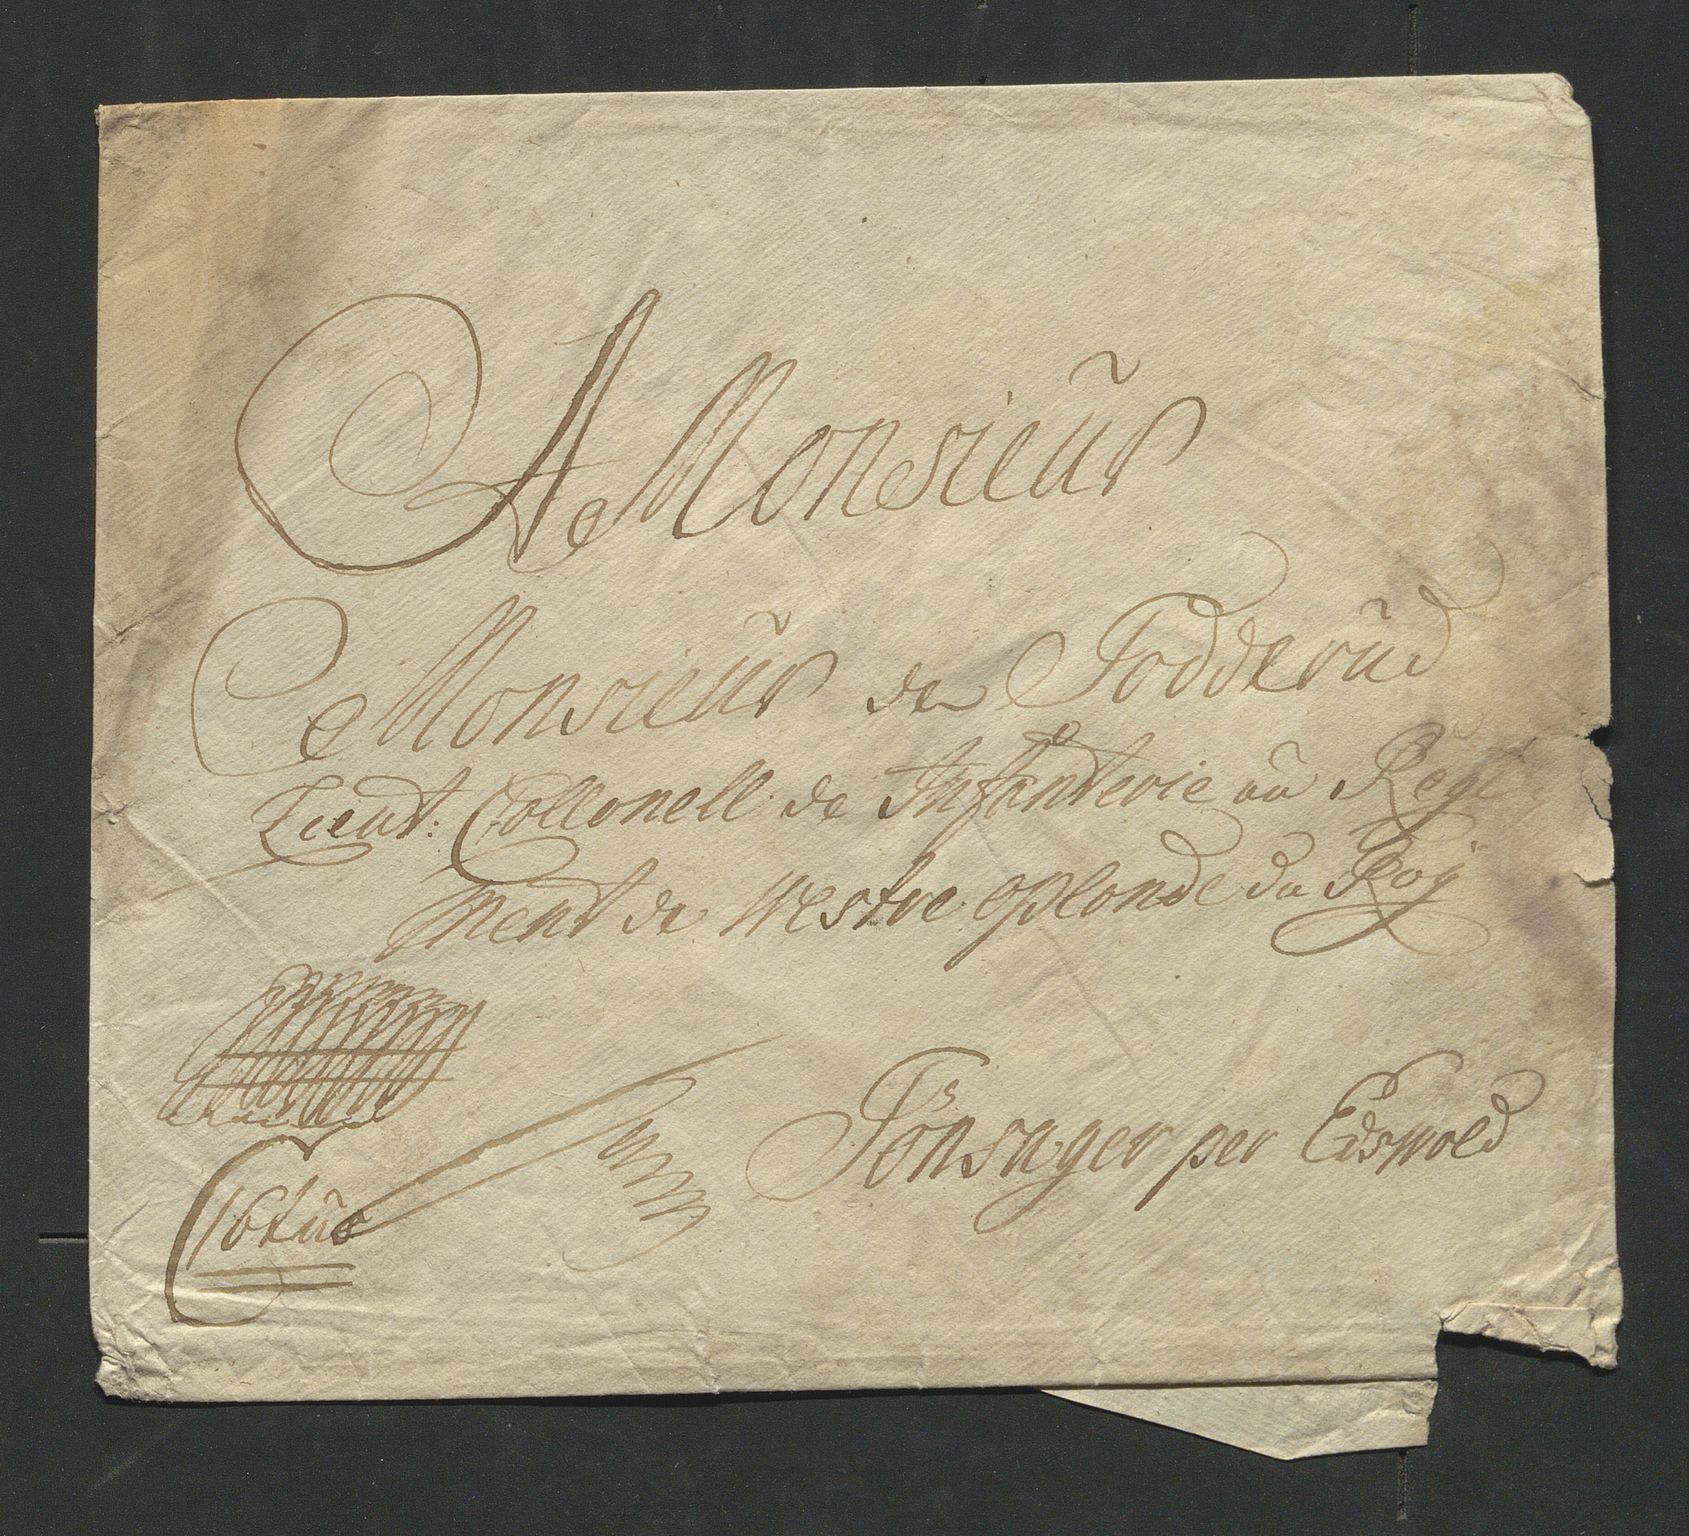 A Monsieur
Monsieur de Todderud
Lieut: Collonell de Infanterie au Regi
ment de Westre Oplonde du Roy
Tönsager per Edswold
Cito